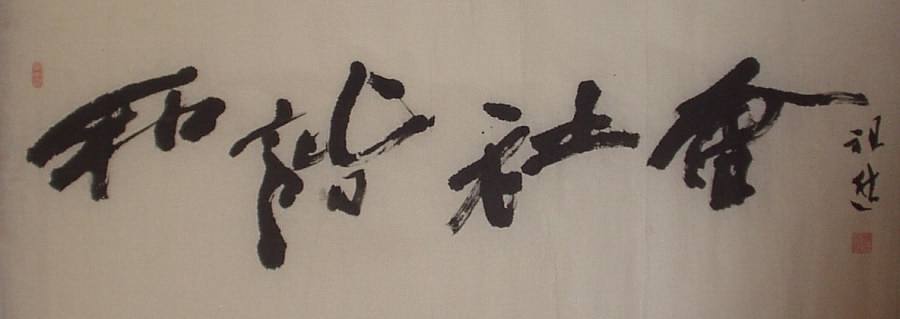 和諧社會